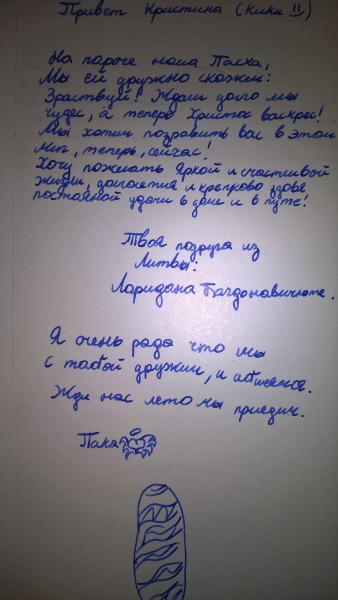 Привет Кристина (Кики II)
На пароге наша Пасха,
Мы ей дружно скажем:
Зраствуй! Ждали долго мы
чудес, а теперь Христос васкрес!
Мы хотим поздравить вас в этот
миг, теперь, сейчас!
Хочу пожелать яркой и счастливой
жизни, долголетия и крепково здовя
постаяной удачи в доме и в путе!
Твоя подруга из
Литвы:
Лоридана Багдонавичюте.
Я очень рада что мы
с табой дружим, и абшаемся.
Жди нас лето мы приедим.
Пака